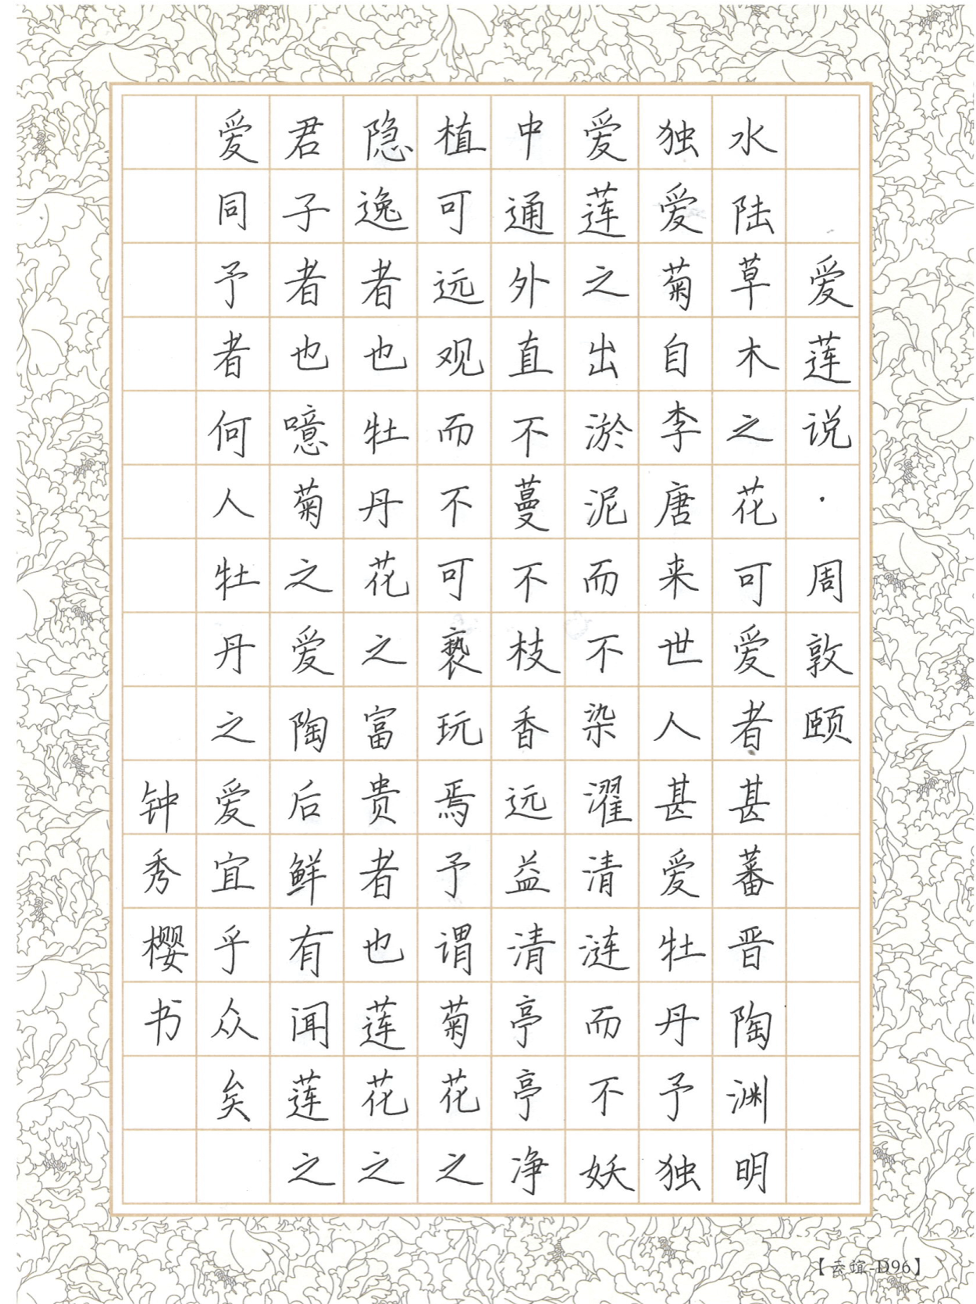 爱莲说·周敦颐
水陆草木之花可爱者甚蕃晋陶渊明
独爱菊自李唐来世人甚爱牡丹予独
爱莲之出淤泥而不染濯清涟而不妖
中通外直不蔓不枝香远益清亭亭净
植可远观而不可亵玩焉予谓菊花之
隐逸者也牡丹花之富贵者也莲花之
君子者也噫菊之爱陶后鲜有闻莲之
爱同予者何人牡丹之爱宜乎众矣
钟秀樱书
【云谊-D96】